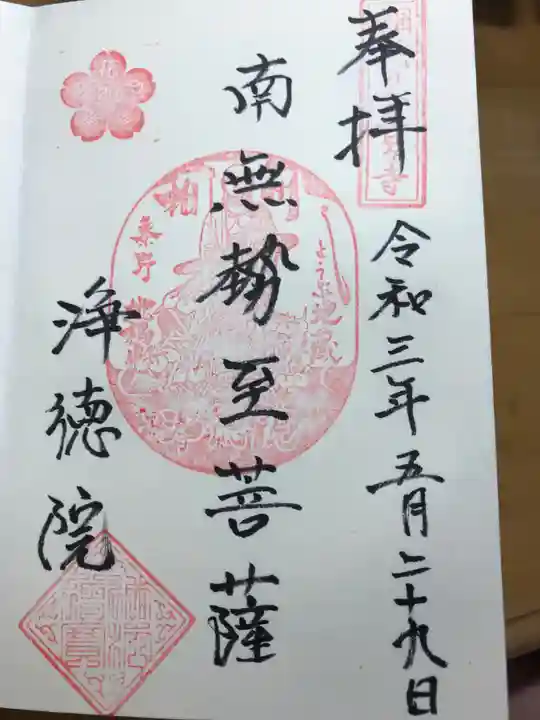 奉拝
令和三年五月二十九日
南無勢至菩薩
浄徳院
秦野